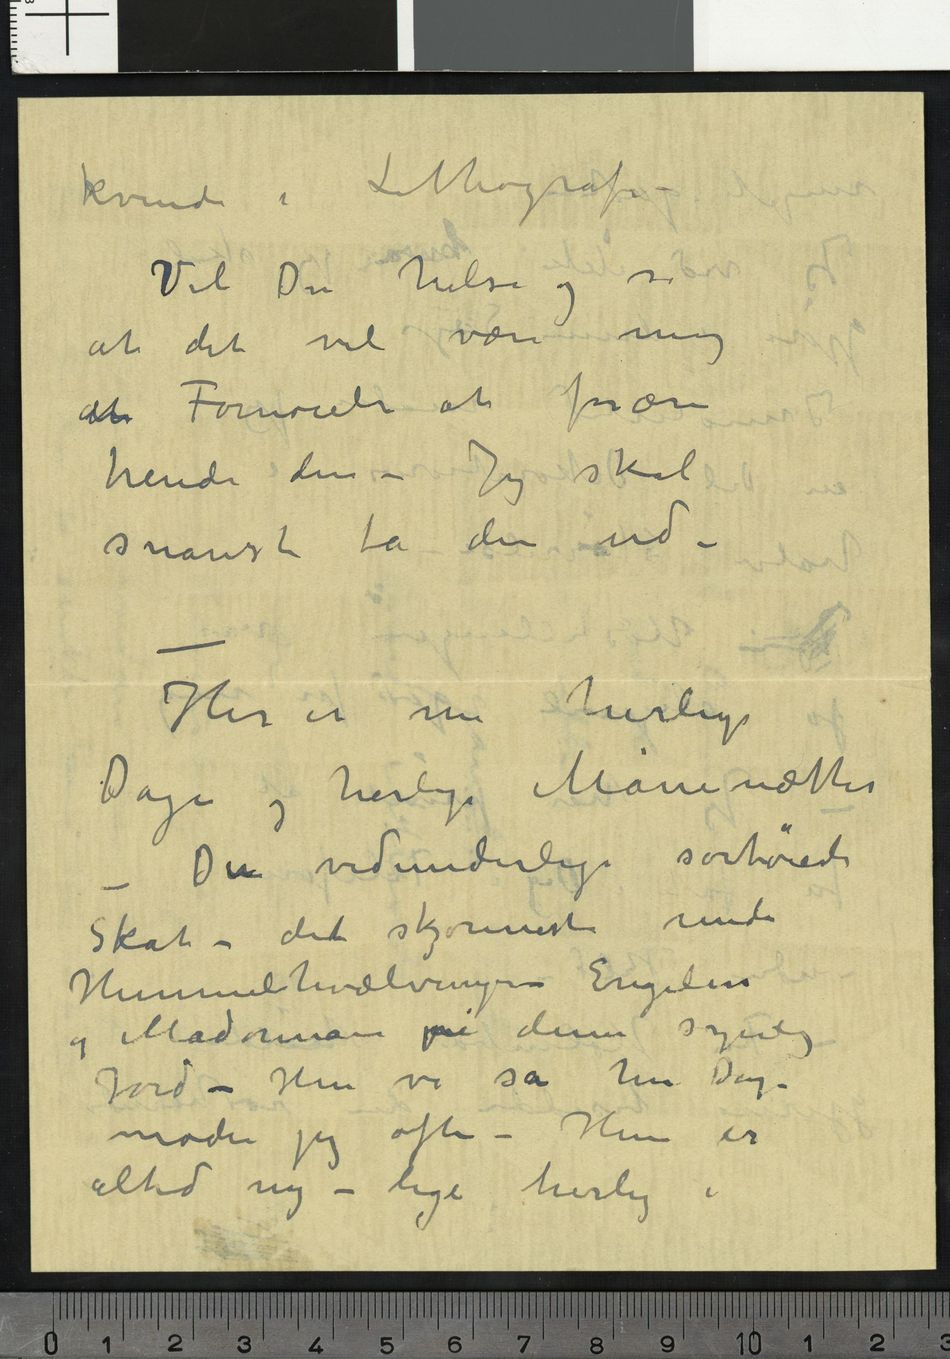 kvinde i Lithografi –
Vil Du hilse og si
at det vil være mig
en Fornøielse at forære
hende den – Jeg skal
snarest ta den ud –
—
Her er nu herlige
Dage og herlige Månenætter
– Den vidunderlige sortøiede
Skat – det skjønneste under
Himmelhvælvingen – Engelen
og Madonnaen på denne syndig
Jord – Hun vi så hin Dag –
møder jeg ofte – Hun er
altid ny – lige herlig i